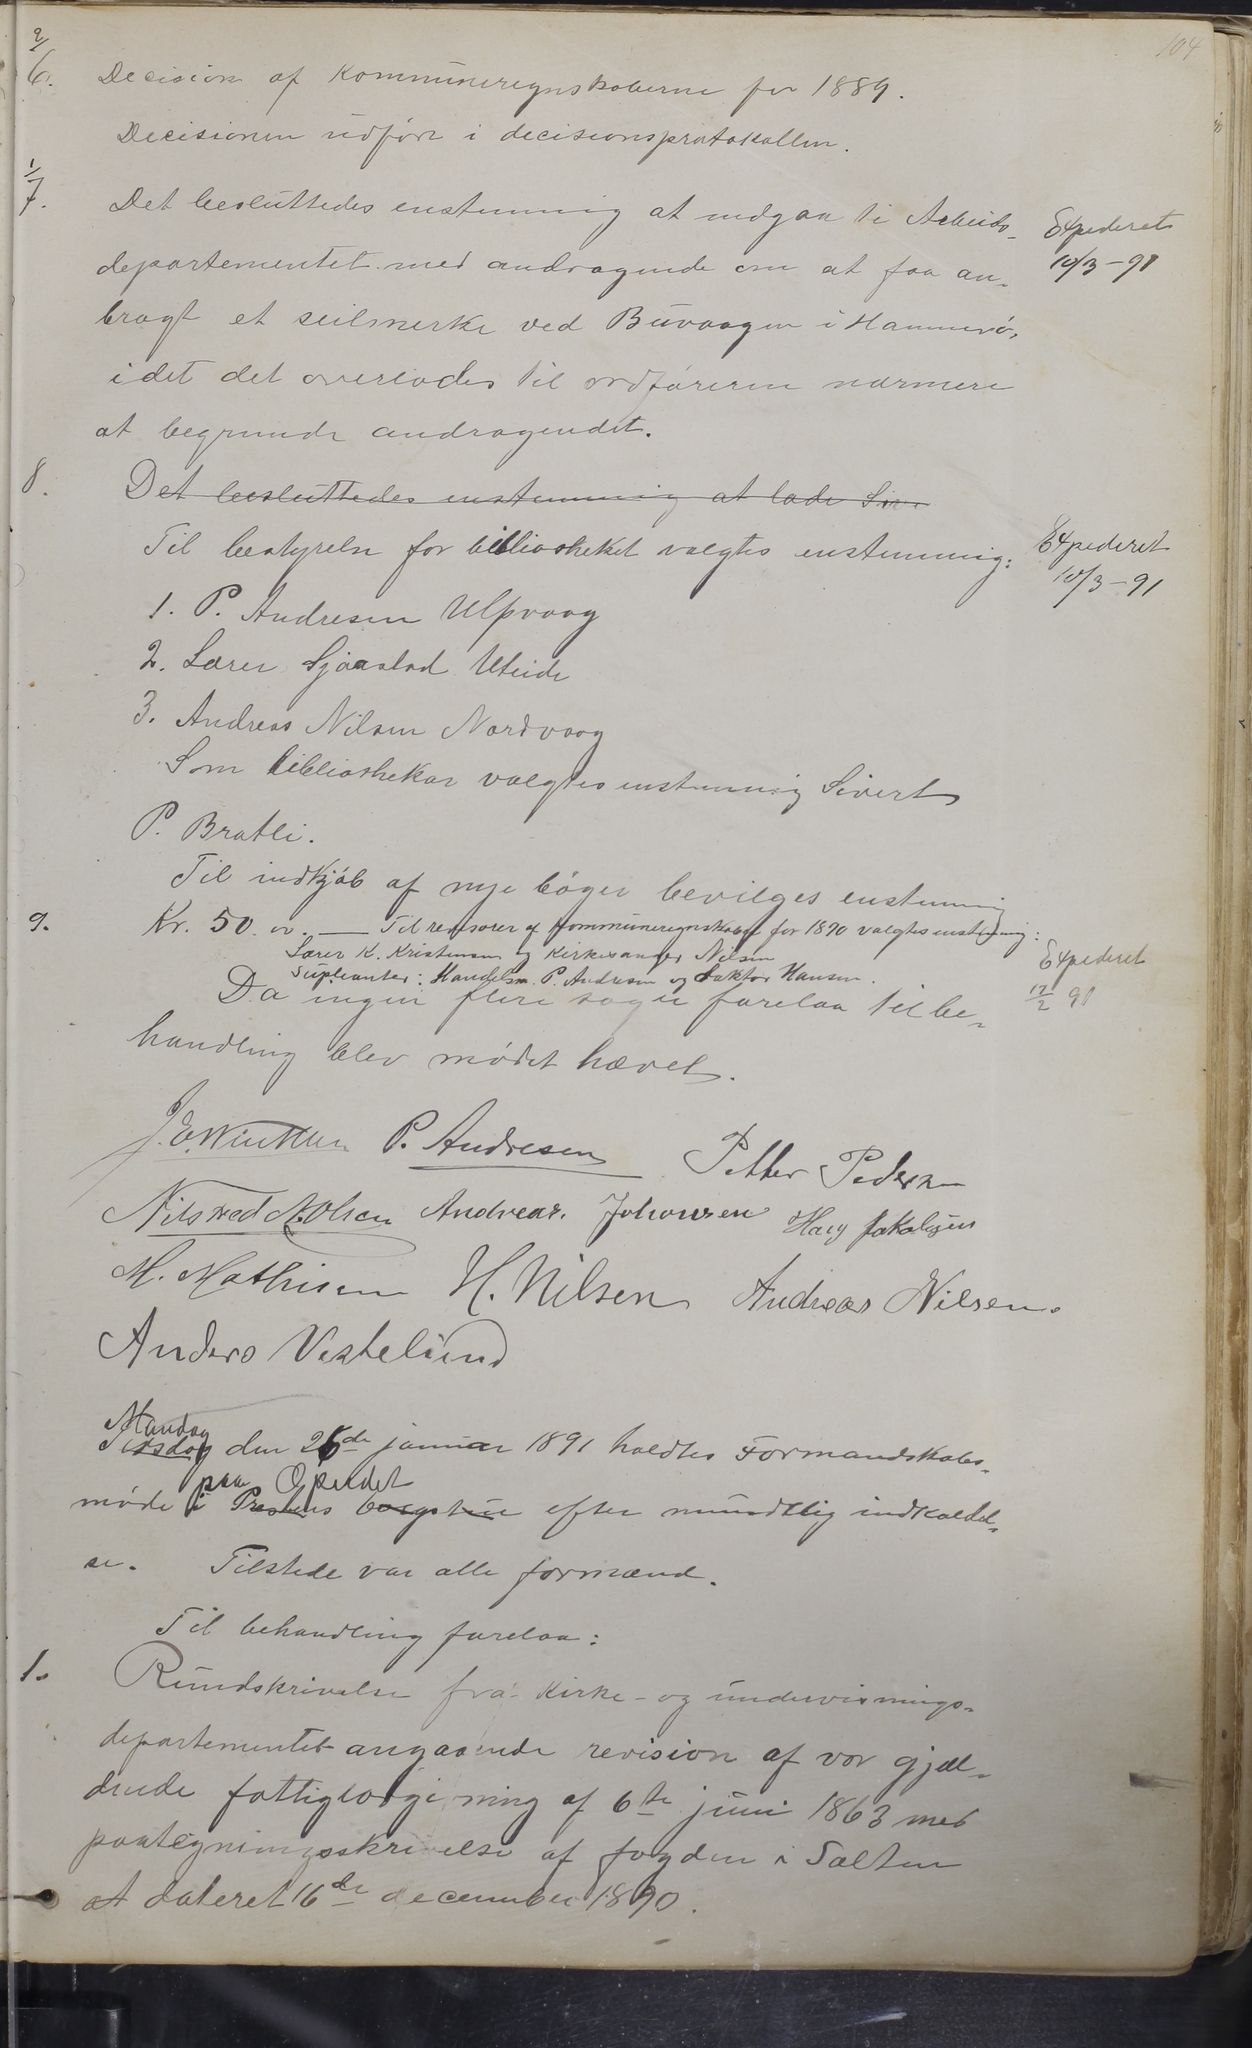 104
2/6. Decision af Kommuneregnskaberne for 1889.
Decisionen udført i decisionsprotokollen.
1/7. Det besluttedes enstemmig at indgaa til Arbeids-
Expederet
10/3-91
departementet med andragende om at faa an-
bragt et seilmerke ved Buvaagen i Hammerø,
idet det overlodes til ordføreren nærmere
at begrunde andragendet.
8. Det besluttedes enstemmig at lade
Til bestyrelse for bibliotheket valgtes enstemmig:
Expederet
10/3-91
1. P. Andresen Ulpvaag
2. Lærer Sjaastad Uteide
3. Andreas Nilsen Nordvaag
Som bibliothekar valgtes enstemmig Sivert
P. Bratli.
Til indkjøb af nye bøger bevilges enstemmig
9. Kr. 50. — Til revisorer af kommuneregnskabet for 1890 valgtes enstemmig:
Lærer K. Kristensen og Kirkesanger Nilsen
Supleanter: Handelsm. P. Andresen og Hansen.
Expederet
12/2 91
Da ingen flere sager forelaa til be-
handling blev mødet hævet.
P. Andresen Petter Pedersen
Olsen Andreas Johansen Jakobsen
M. Mathisen H. Nilsen Andreas Nilsen.
Anders Vestelund
Mandag
Tirsdag den 26de januar 1891 holdtes Formandskabs-
paa Opeidet
møde i Prestens borgstue efter mundtlig indkaldel-
se. Tilstede var alle formænd.
Til behandling forelaa:
1. Rundskrivelse fra Kirke- og undervisnings-
departementet angaaende revision af vor gjæl-
dende fattiglovgivning af 6te juni 1863 med
paategningsskrivelse af fogden i Salten
at dateret 16de december 1890.